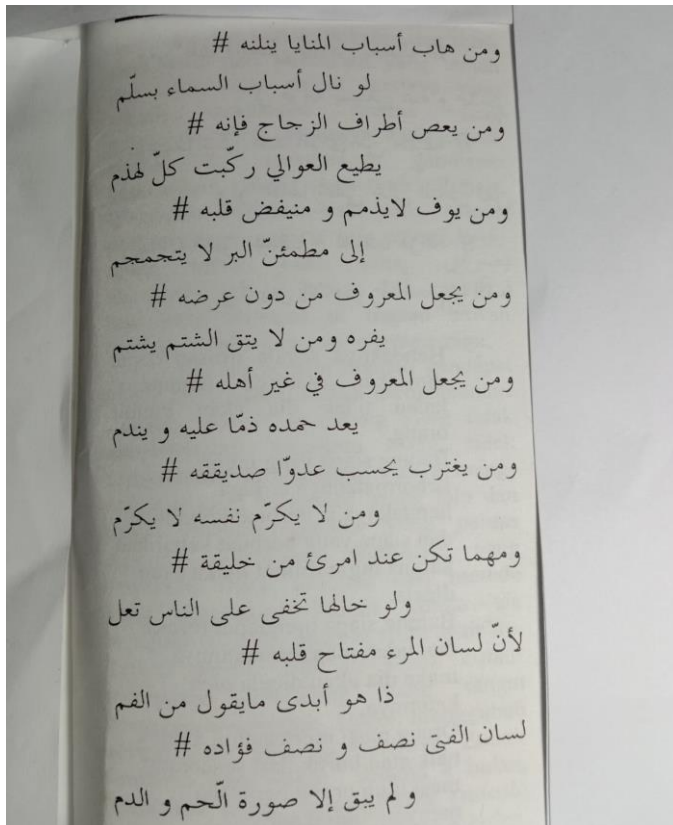 ومن هاب أسباب المنايا ينلنه #
لو نال أسباب السماء بسلّم
ومن يعص أطراف الزجاج فإنه #
يطيع العوالي ركّبت كلّ لهذم
ومن يوف لايذمم و منيفض قلبه #
إلى مطمئنّ البر لا يتجمجم
ومن يجعل المعروف من دون عرضه #
يفره ومن لا يتق الشتم يشتم
ومن يجعل المعروف في غير أهله #
يعد حمده ذمّا عليه و يندم
ومن يغترب يحسب عدوّا صديققه #
ومن لا يكرّم نفسه لا يكرّم
ومهما تكن عند امرئ من خليقة #
ولو خالها تخفى على الناس تعل
لأنّ لسان المرء مفتاح قلبه #
ذا هو أبدى مايقول من الفم
لسان الفتى نصف و نصف فؤاده #
و لم يبق إلا صورة الّحم و الدم